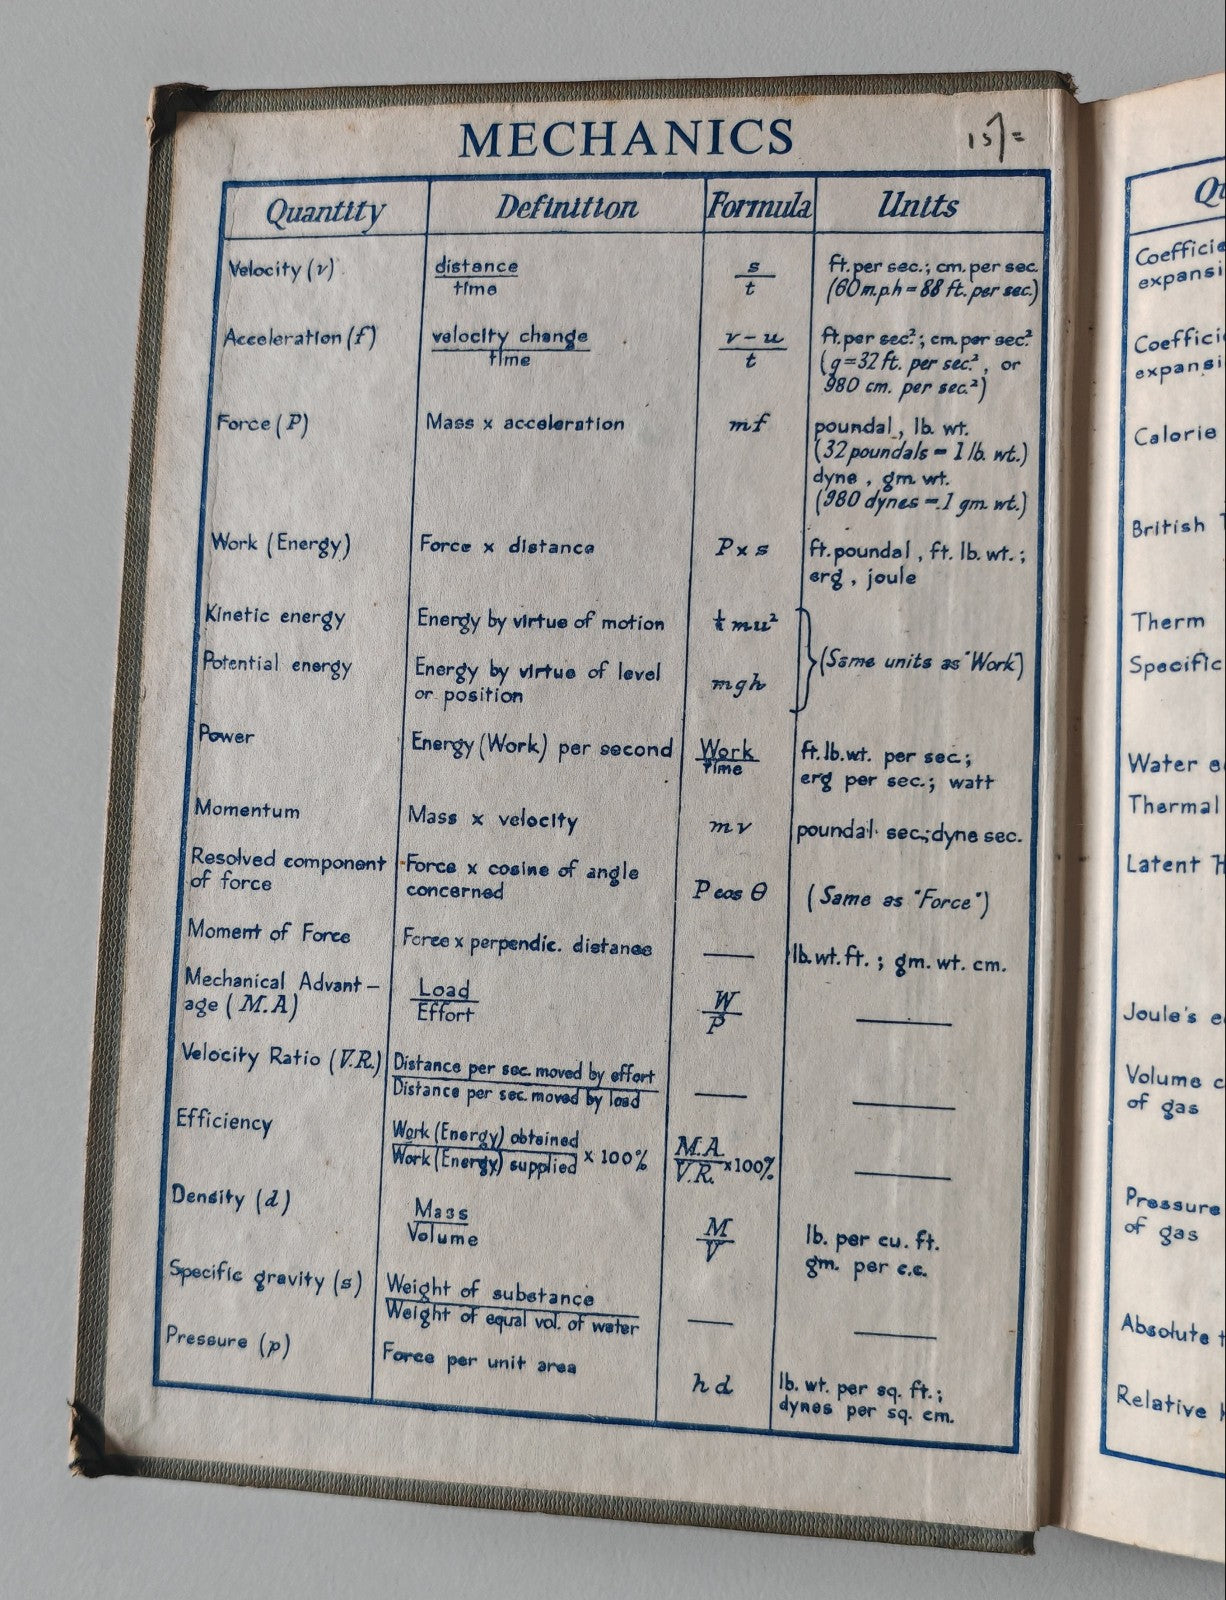 MECHANICS
15/=
Quantity Definition Formula Units
Velocity (v) distance / time s / t ft. per sec.; cm. per sec.
(60 m.p.h = 88 ft. per sec.)
Acceleration (f) velocity change / time v - u / t ft. per sec.²; cm. per sec.²
(g = 32 ft. per sec.², or
980 cm. per sec.²)
Force (P) Mass x acceleration mf poundal, lb. wt.
(32 poundals = 1 lb. wt.)
dyne, gm. wt.
(980 dynes = 1 gm. wt.)
Work (Energy) Force x distance P x s ft. poundal, ft. lb. wt.;
erg, joule
Kinetic energy Energy by virtue of motion ½ mu²
(Same units as "Work")
Potential energy Energy by virtue of level
or position mgh
Power Energy (Work) per second Work / time ft. lb. wt. per sec.;
erg per sec.; watt
Momentum Mass x velocity mv poundal sec.; dyne sec.
Resolved component
of force Force x cosine of angle
concerned P cos θ (Same as "Force")
Moment of Force Force x perpendic. distance — lb. wt. ft.; gm. wt. cm.
Mechanical Advant-
age (M.A) Load / Effort W / P —
Velocity Ratio (V.R.) Distance per sec. moved by effort / Distance per sec. moved by load — —
Efficiency Work (Energy) obtained / Work (Energy) supplied x 100% M.A. / V.R. x 100% —
Density (d) Mass / Volume M / V lb. per cu. ft.
gm. per c.c.
Specific gravity (s) Weight of substance / Weight of equal vol. of water — —
Pressure (p) Force per unit area hd lb. wt. per sq. ft.;
dynes per sq. cm.
Calorie
British
Therm
Specific
Water
Thermal
Latent
Joule's
Volume
of gas
Pressure
of gas
Absolute
Relative